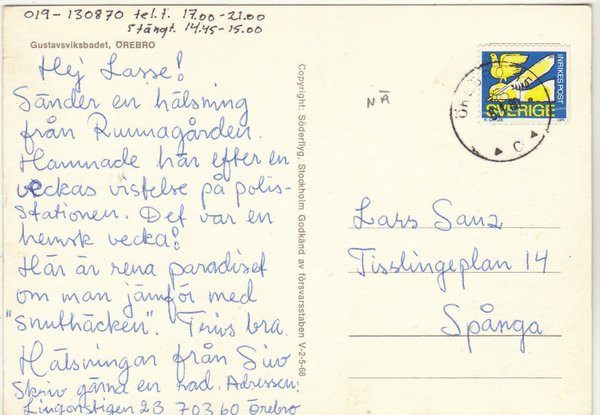 019-130870 tel.t. 17.00-21.00
Stängt. 14.45-15.00
Gustavsviksbadet, ÖREBRO
Hej Lasse!
Sänder en hälsning
från Runnagården.
Hamnade här efter en
veckas vistelse på polis-
stationen. Det var en
hemsk vecka!
Här är rena paradiset
om man jämför med
"snuthäcken". Trivs bra.
Hälsningar från Siv
Skriv gärna en rad. Adressen:
Lingonstigen 2B 70360 Örebro
Copyright: Söderflyg, Stockholm Godkänd av försvarsstaben V-2-5-68
NÄ
INRIKES POST
SVERIGE
C
Lars Sanz
Tisslingeplan 14
Spånga